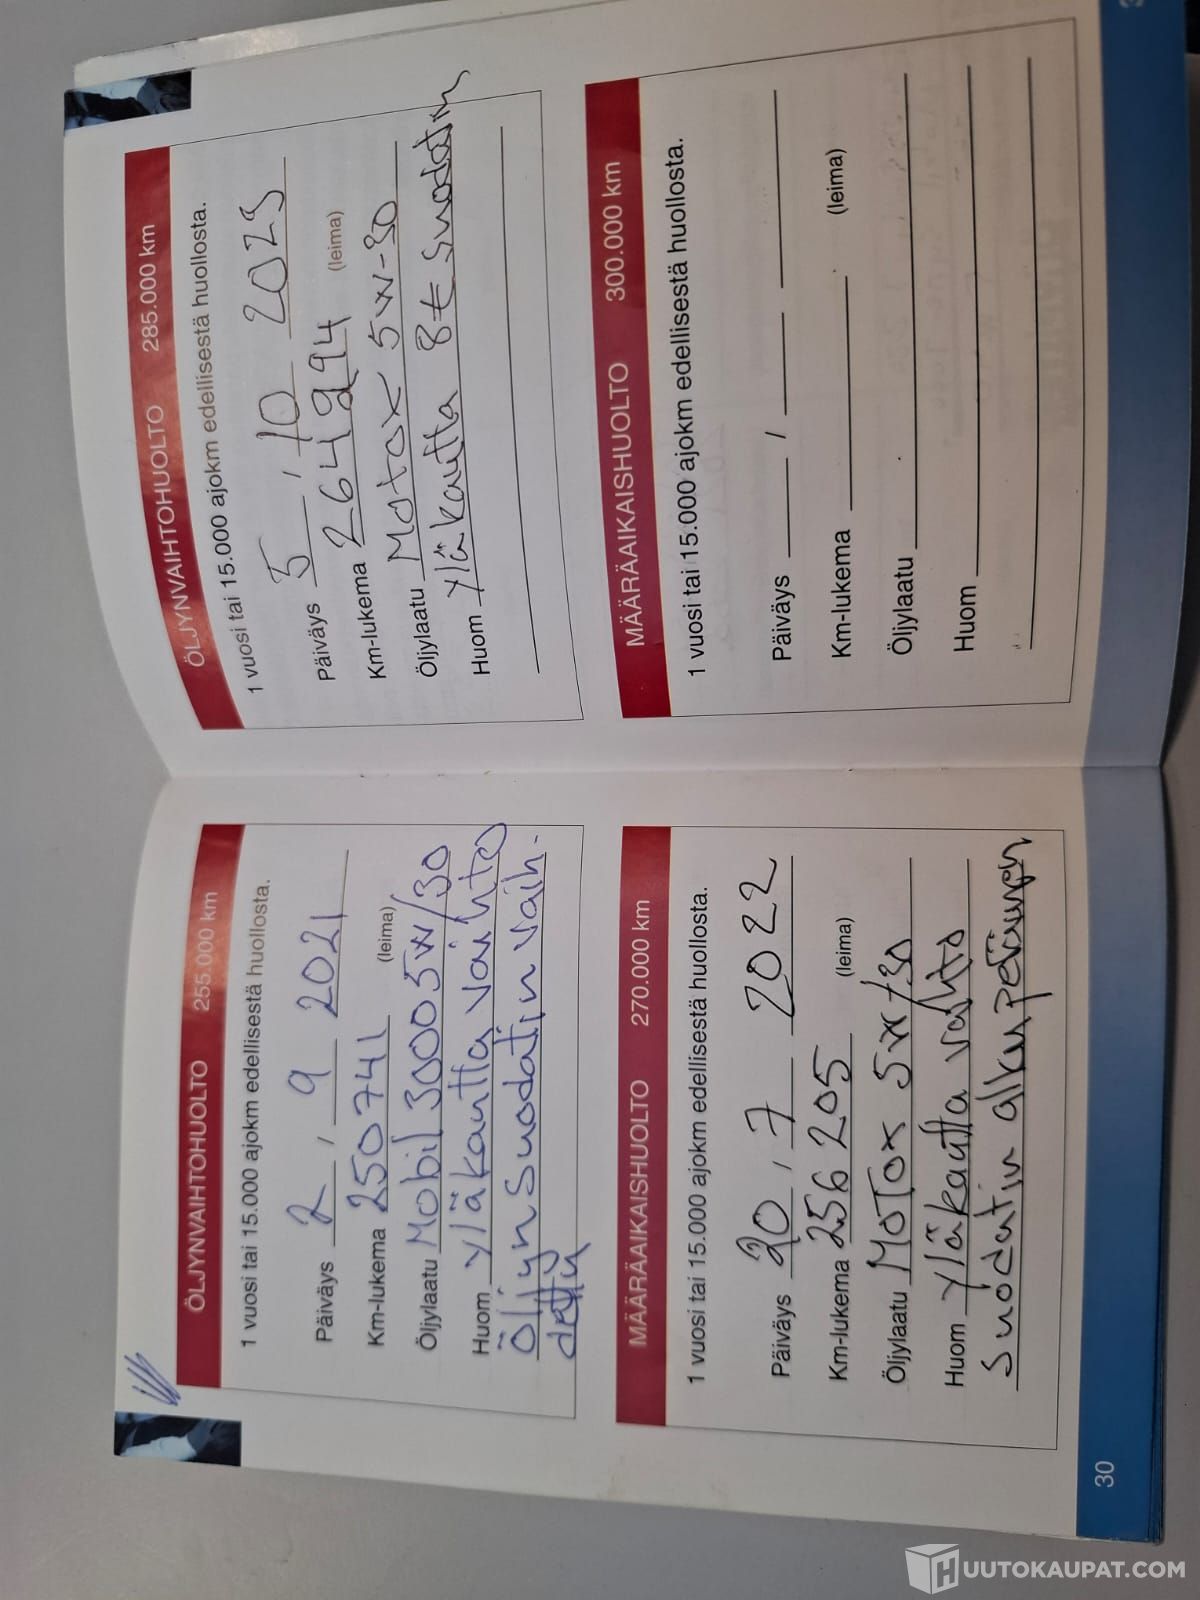 ÖLJYNVAIHTOHUOLTO 255.000 km
1 vuosi tai 15.000 ajokm edellisestä huollosta.
Päiväys 2 , 9 2021
Km-lukema 250741 (leima)
Öljylaatu Mobil 3000 5w/30
Huom yläkautta vaihto
Öljyn suodatin vaih-
dettu
MÄÄRÄAIKAISHUOLTO 270.000 km
1 vuosi tai 15.000 ajokm edellisestä huollosta.
Päiväys 20 , 7 2022
Km-lukema 256205 (leima)
Öljylaatu MOTOX 5w/30
Huom yläkautta vaihto
suodatin alkuperäinen
30
ÖLJYNVAIHTOHUOLTO 285.000 km
1 vuosi tai 15.000 ajokm edellisestä huollosta.
Päiväys 5 , 10 2023
Km-lukema 264994 (leima)
Öljylaatu Motox 5w-30
Huom yläkautta 8€ suodatin
MÄÄRÄAIKAISHUOLTO 300.000 km
1 vuosi tai 15.000 ajokm edellisestä huollosta.
Päiväys ,
Km-lukema (leima)
Öljylaatu
Huom
3
HUUTOKAUPAT.COM